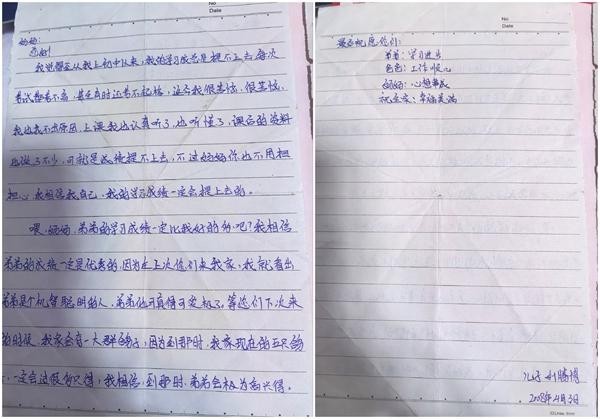 No
Date
妈妈:
您好!
我觉得自从我上初中以来,我的学习成绩总是提不上去每次
考试都考不高,甚至有时还考不起格,这令我很苦恼、很苦恼、
我也找不出原因,上课我也认真听了,也听懂了,课后的资料
也做了不少,可就是成绩提不上去,不过妈妈你也不用担
担心,我相信我自己,我的学习成绩一定会提上去的。
喂,妈妈,弟弟的学习成绩一定比我好的多吧?我相信
弟弟的成绩一定是优秀的,因为在上次您们来我家,我就看出
弟弟是个机智聪明的人,弟弟他可真得可爱极了。等您们下次来
的时候,我家会有一大群鸽子,因为到那时,我家现在的五只鸽
一定会过很多只得,我相信,到那时,弟弟会极为高兴得。
No
Date
最后祝愿您们:
弟弟:学习进步
爸爸:工作顺心
妈妈:心想事成
祝全家:幸福美满
儿子 刘腾博
2008年4月3日